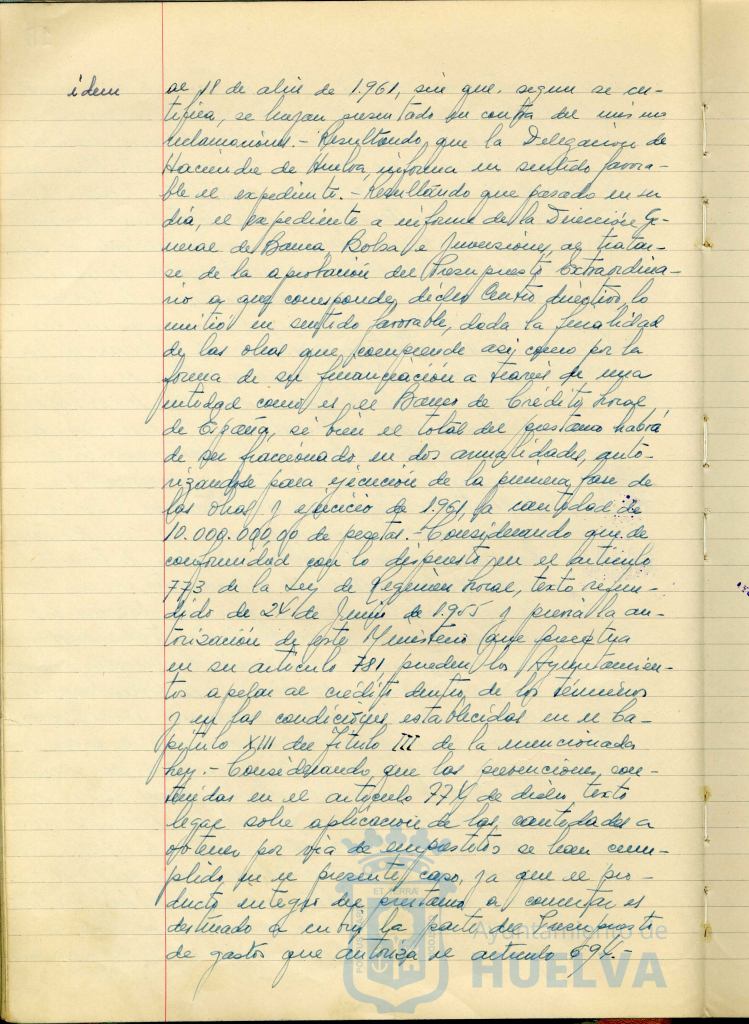 idem
al 18 de abril de 1.961, sin que, segun se cer-
tifica, se hayan presentado en contra del mismo
reclamaciones.- Resultando, que la Delegación de
Hacienda de Huelva, informa en sentido favora-
ble el expediente.- Resultando que pasado en su
día, el expediente a informe de la Dirección Ge-
neral de Banca, Bolsa e Inversiones, al tratar-
se de la aprobación del Presupuesto Extraordina-
rio a que corresponde, dicho Centro directivo, lo
emitió en sentido favorable, dada la finalidad
de las obras que comprende así como por la
forma de su financiación a través de una
entidad como es el Banco de Crédito Local
de España, si bien el total del prestamo habrá
de ser fraccionado en dos anualidades, auto-
rizandose para ejecución de la primera fase de
las obras y ejercicio de 1.961, la cantidad de
10.000.000,00 de pesetas.- Considerando que de
conformidad con lo dispuesto en el artículo
773 de la Ley de Régimen Local, texto refun-
dido de 24 de Junio de 1.955 y previa la au-
torización de este Ministerio que preceptua
en su artículo 781, pueden los Ayuntamien-
tos apelar al crédito dentro de los términos
y en las condiciones establecidas en el Ca-
pítulo XIII del Título III de la mencionada
Ley.- Considerando, que las prevenciones con-
tenidas en el artículo 774 de dicho texto
legal sobre aplicación de las cantidades a
obtener por via de empréstitos se han cum-
plido en el presente caso, ya que el pro-
ducto integro del prestamo a concertar es
destinado a cubrir la parte del Presupuesto
de gastos que autoriza el artículo 694.-
Ayuntamiento de
HUELVA